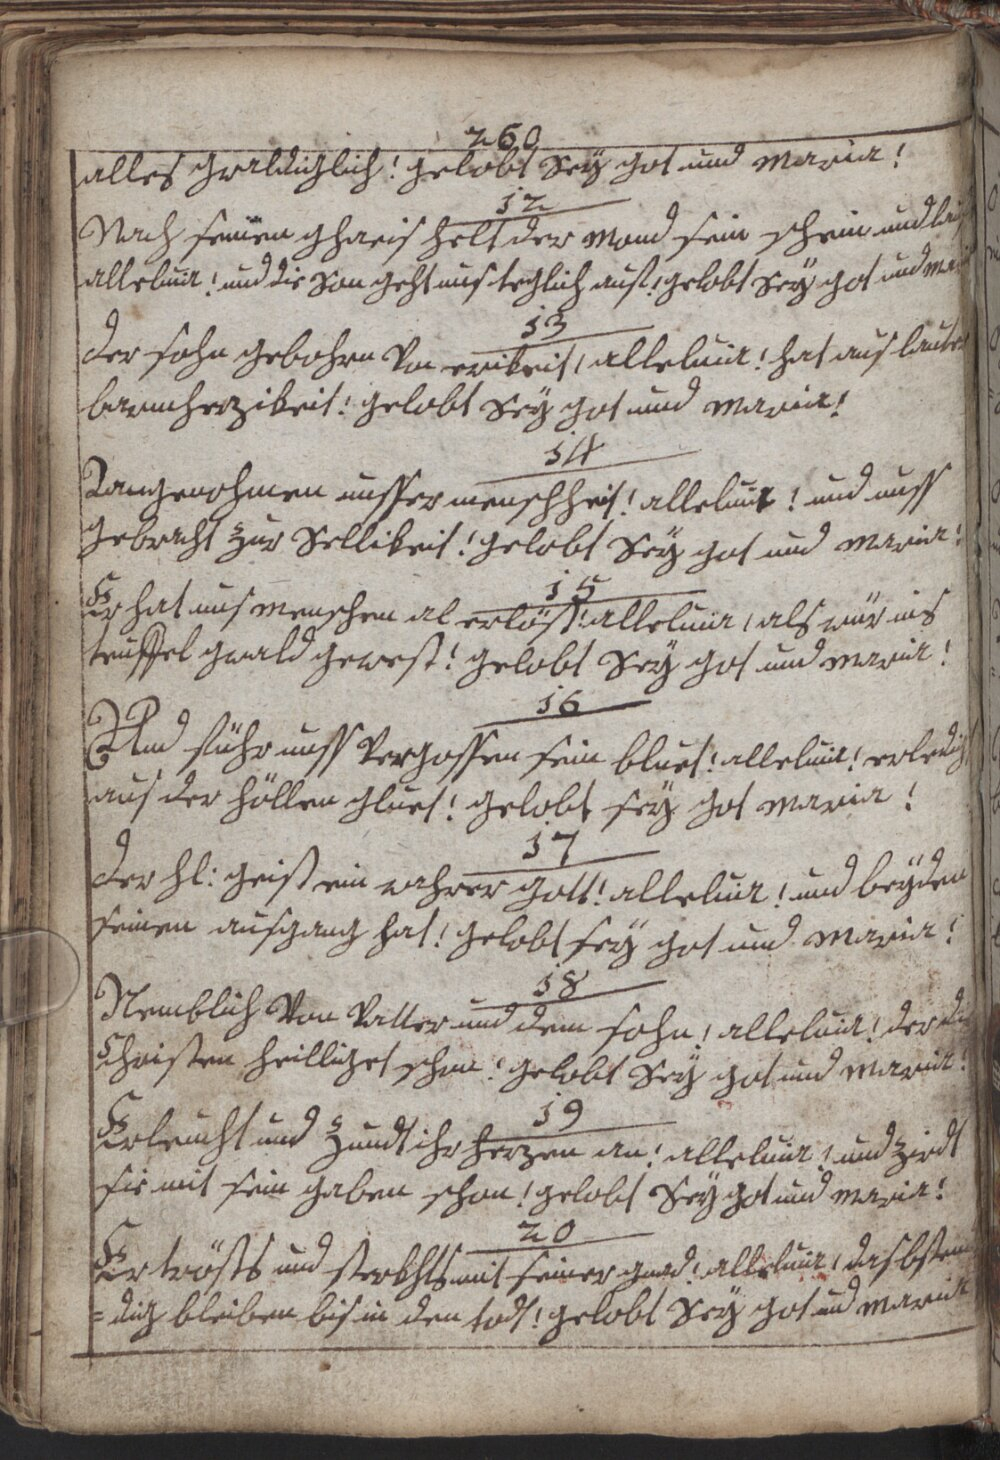 260
alles gwaldiglich! gelobt Sey got und Maria!
12
Nach seinen ghaeis helt der Mond sein schein und lauf
alleluia! und die Son geht uns teglich auf! gelobt Sey got und Maria
13
der sohn gebohrn Von ewikeit, alleluia! hat aus lauter
barmherzikeit! gelobt Sey got und Maria!
14
angenohmen unsser menschheit! alleluia! und unss
gebracht zur Sellikeit! gelobt Sey got und Maria!
15
Er hat uns Menschen al erlöst! alleluia, als wür ins
teuffel gwald gewest! gelobt Sey got und Maria!
16
Und führ unss Vergossen sein bluet! alleluia! erledigt
aus der höllen gluet! gelobt sey got Maria!
17
der hl: geist ein wahrer gott! alleluia! und beyden
seinen ausgang hat! gelobt sey got und Maria!
18
Nemblich Von Vatter und dem sohn! alleluia! der die
Christen heilliget schon! gelobt Sey got und Maria!
19
Erleucht und Zundt ihr herzen an! alleluia! und zirdt
sie mit sein gaben schon! gelobt Sey got und Maria!
20
Er tröst und sterkhts mit seiner gnad! alleluia, das bsten
=dig bleiben bis in den todt! gelobt Sey got und Maria